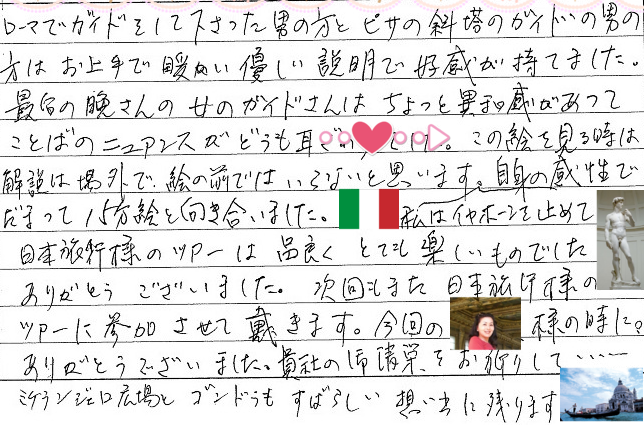 ローマでガイドをして下さった男の方と ピサの斜塔のガイドの男の
方は お上手で 暖かい 優しい 説明で 好感が 持てました。
最后の晩さんの 女のガイドさんは ちょっと異和感があって
ことばのニュアンスが どうも耳ざわりでした。この絵を見る時は
解説は場外で、絵の前では いらないと思います。自身の感性で
だまって 15分絵と向き合いました。私はイヤホーンを止めて
日本旅行様のツアーは 品良く とても 楽しいものでした
ありがとう ございました。 次回もまた 日本旅行様の
ツアーに 参加 させて 戴きます。今回の 様の時に。
ありがとうございました。貴社の御清栄をお祈りして……
ミケランジェロ広場と ゴンドラも すばらしい 想い出に 残ります